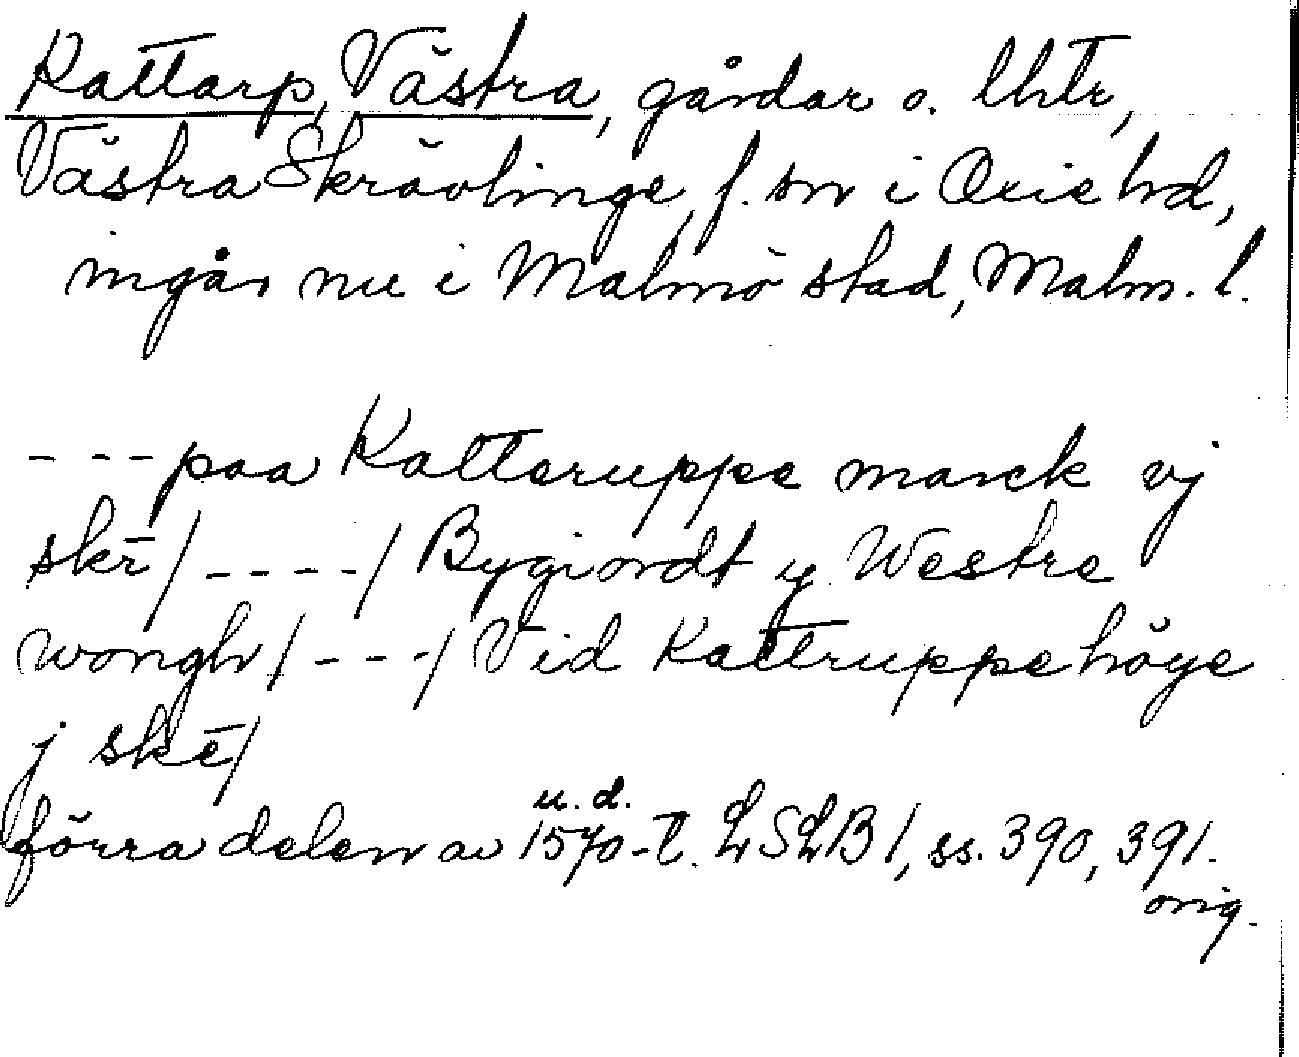 Kattarp, Västra, gårdar o. lhtr,
Västra Skrävlinge, f. sn i Oxie hd,
ingår nu i Malmö stad, Malm. l.
- - - paa Katteruppe marck vj
skē/ - - - - / Bygiordt y. Westre
wongh/ - - - / Vid Kattruppe höye
j skē/
u. d.
förra delen av 1570-t. LSLB 1, ss. 390, 391.
orig.